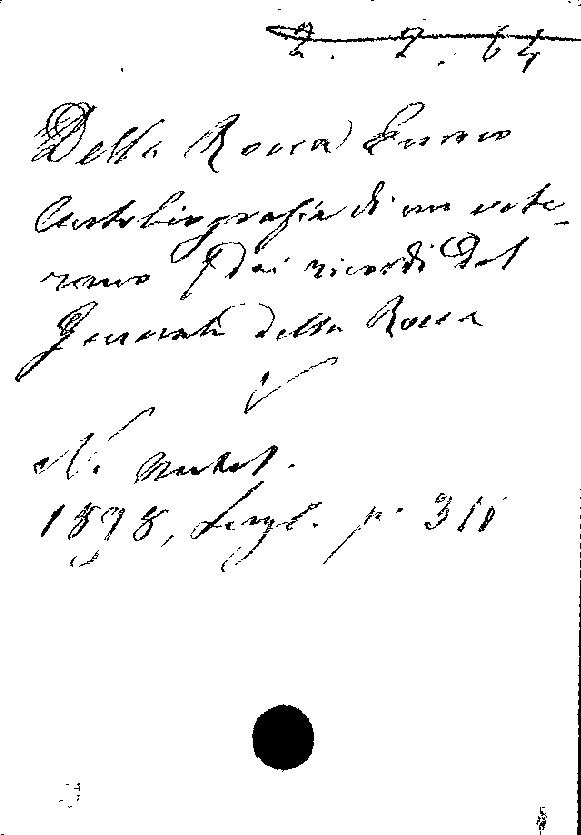 2. 2. 64
Della Rocca Enrico
Autobiografia di un vete-
rano I dai ricordi del
Generale della Rocca
N. Antol.
1898, Lugl. p. 311